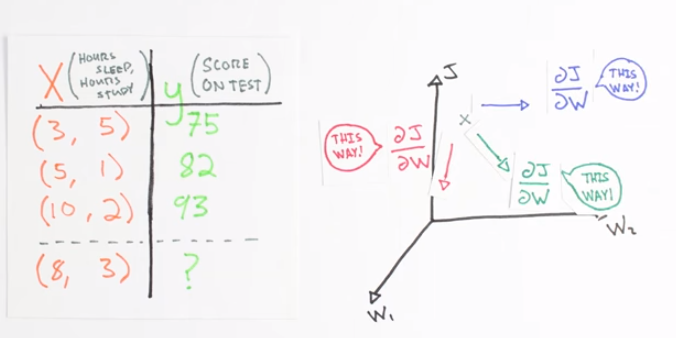 X (HOURS SLEEP, HOURS STUDY)
y (SCORE ON TEST)
(3, 5) 75
(5, 1) 82
(10, 2) 93
(8, 3) ?
J
∂J/∂W THIS WAY!
X
THIS WAY! ∂J/∂W
∂J/∂W THIS WAY!
W₂
W₁